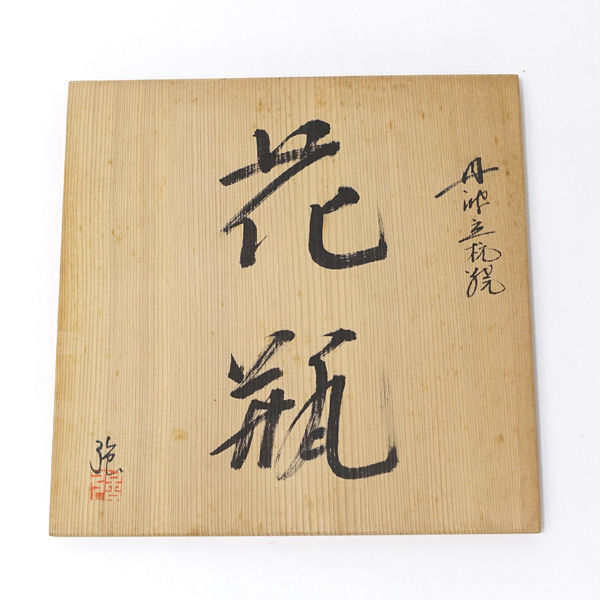 丹波立杭焼
花瓶